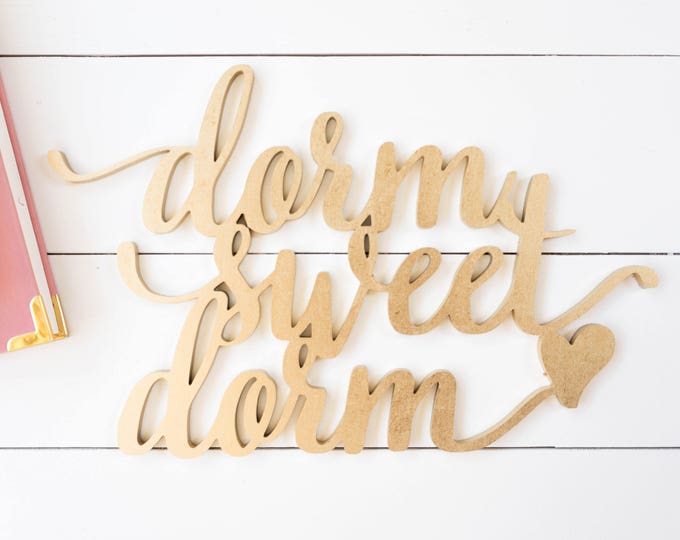 dormy
sweet
dorm